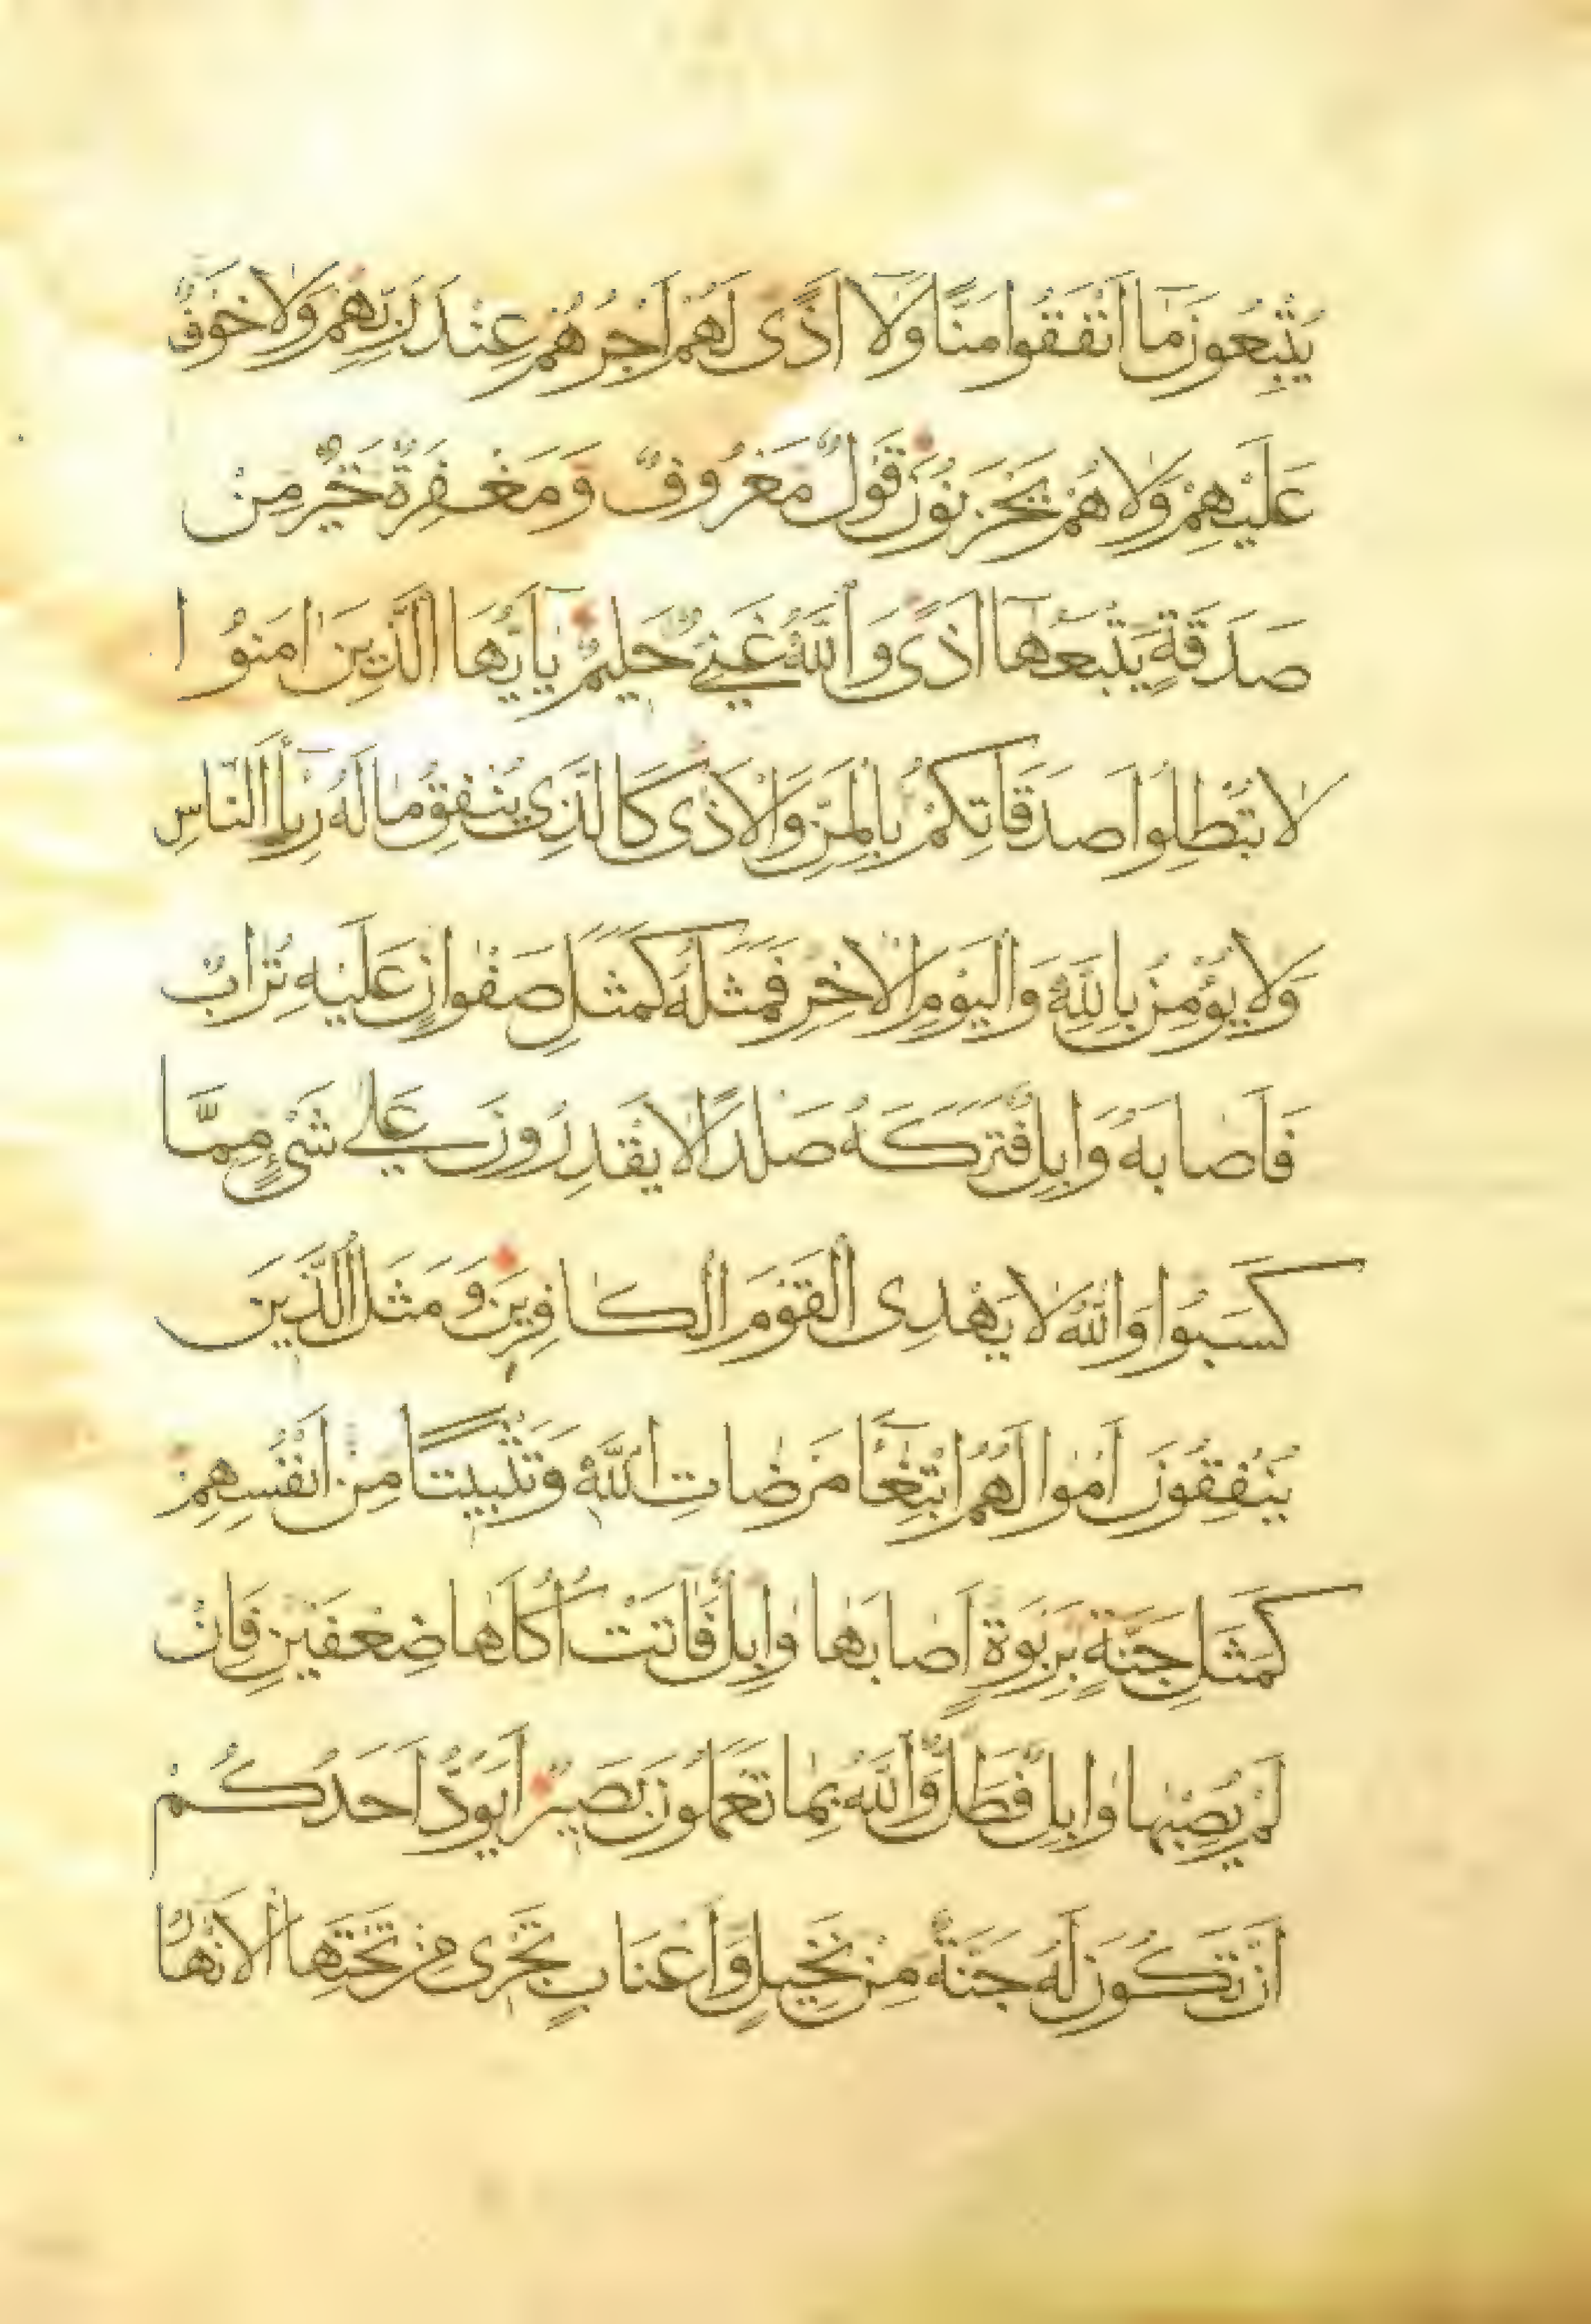 يُتْبِعُونَ مَآ اَنْفَقُوا مَنًّا وَلَآ اَذًى لَهُمْ اَجْرُهُمْ عِنْدَ رَبِّهِمْ وَلَا خَوْفٌ
عَلَيْهِمْ وَلَا هُمْ يَحْزَنُونَ قَوْلٌ مَعْرُوفٌ وَمَغْفِرَةٌ خَيْرٌ مِنْ
صَدَقَةٍ يَتْبَعُهَآ اَذًى وَاللّٰهُ غَنِيٌّ حَلِيمٌ يَآ اَيُّهَا الَّذِينَ اٰمَنُوا
لَا تُبْطِلُوا صَدَقَاتِكُمْ بِالْمَنِّ وَالْاَذٰى كَالَّذِي يُنْفِقُ مَالَهُ رِئَآءَ النَّاسِ
وَلَا يُؤْمِنُ بِاللّٰهِ وَالْيَوْمِ الْاٰخِرِ فَمَثَلُهُ كَمَثَلِ صَفْوَانٍ عَلَيْهِ تُرَابٌ
فَاَصَابَهُ وَابِلٌ فَتَرَكَهُ صَلْدًا لَا يَقْدِرُونَ عَلٰى شَيْءٍ مِمَّا
كَسَبُوا وَاللّٰهُ لَا يَهْدِى الْقَوْمَ الْكَافِرِينَ وَمَثَلُ الَّذِينَ
يُنْفِقُونَ اَمْوَالَهُمُ ابْتِغَآءَ مَرْضَاتِ اللّٰهِ وَتَثْبِيتًا مِنْ اَنْفُسِهِمْ
كَمَثَلِ جَنَّةٍ بِرَبْوَةٍ اَصَابَهَا وَابِلٌ فَاٰتَتْ اُكُلَهَا ضِعْفَيْنِ فَاِنْ
لَمْ يُصِبْهَا وَابِلٌ فَطَلٌّ وَاللّٰهُ بِمَا تَعْمَلُونَ بَصِيرٌ اَيَوَدُّ اَحَدُكُمْ
اَنْ تَكُونَ لَهُ جَنَّةٌ مِنْ نَخِيلٍ وَاَعْنَابٍ تَجْرِى مِنْ تَحْتِهَا الْاَنْهَارُ